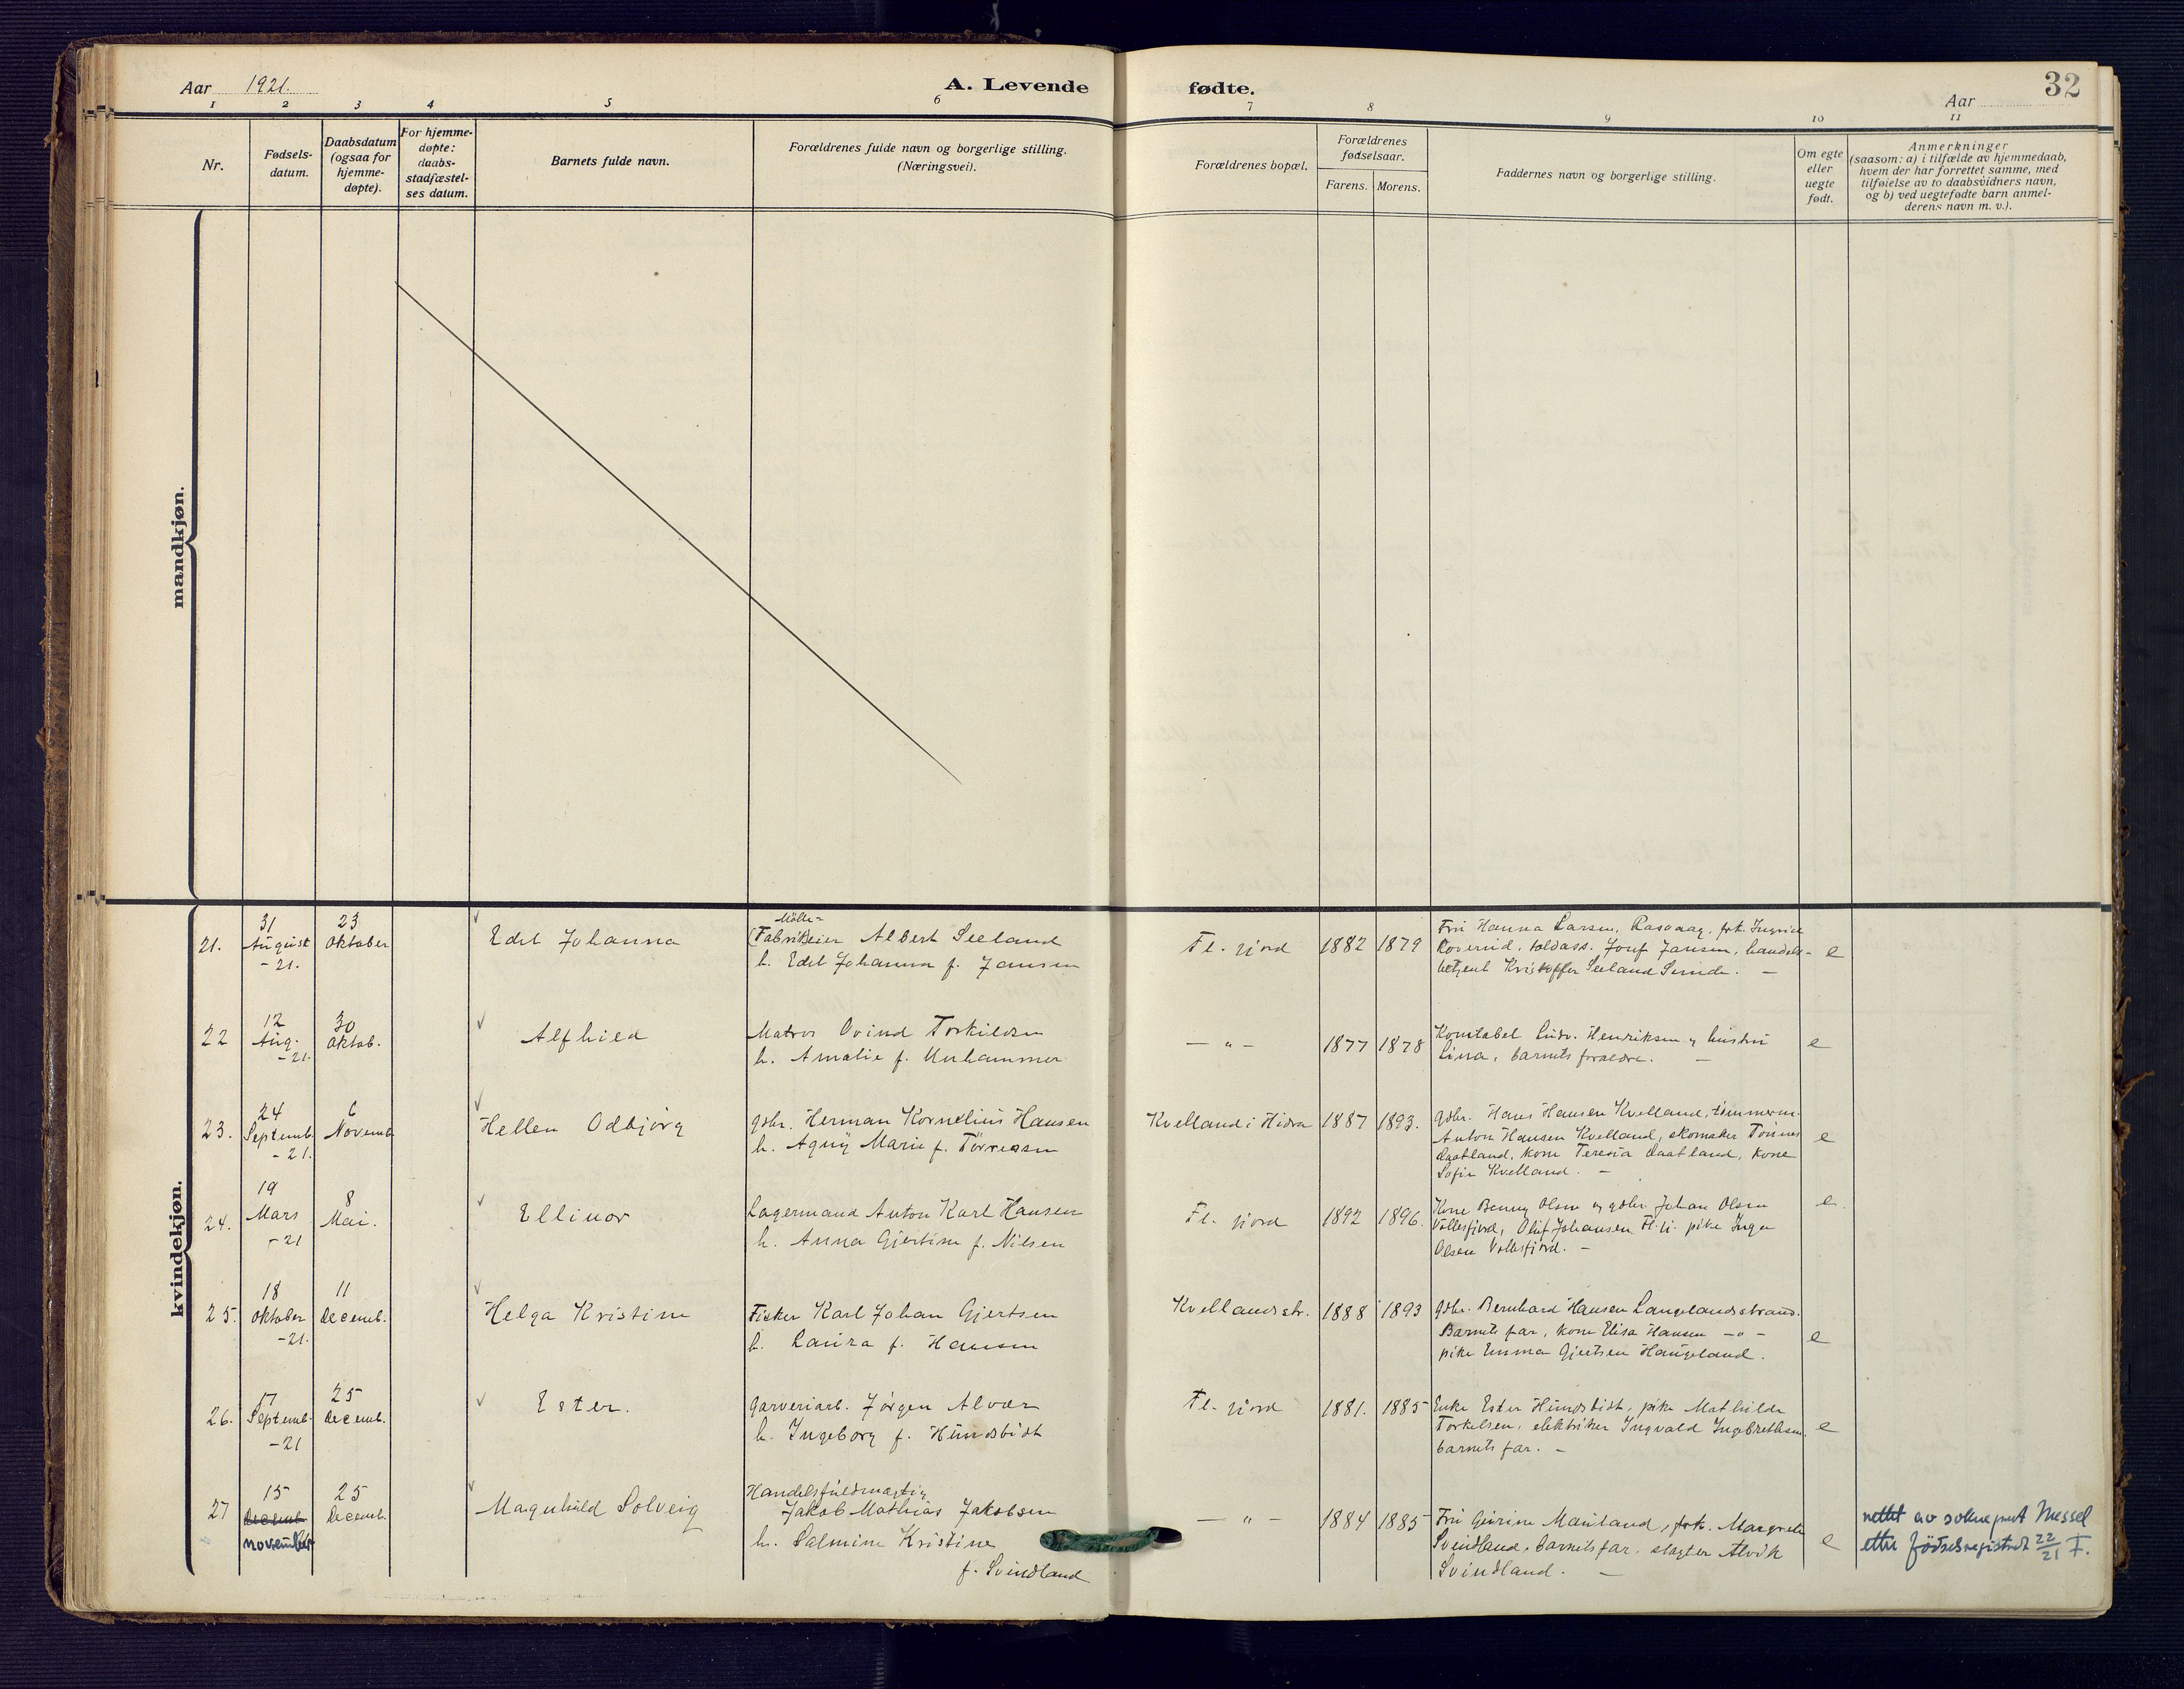 Aar 1921.
A. Levende fødte.
Aar
32
1 2 3 4 5 6 7 8 9 10 11
Nr.
Fødsels-
datum.
Daabsdatum
(ogsaa for
hjemme-
døpte).
For hjemme-
døpte:
daabs-
stadfæstel-
ses datum.
Barnets fulde navn.
Forældrenes fulde navn og borgerlige stilling.
(Næringsvei).
Forældrenes bopæl.
Forældrenes
fødselsaar.
Farens. Morens.
Faddernes navn og borgerlige stilling.
Om egte
eller
uegte
født.
Anmerkninger
(saasom: a) i tilfælde av hjemmedaab,
hvem der har forrettet samme, med
tilføielse av to daabsvidners navn,
og b) ved uegtefødte barn anmel-
derens navn m. v.).
mandkjøn.
kvindekjøn.
21.
31
August
-21.
23
Oktober
Edel Johanna
Mølle-
(Fabrik)eier Albert Seeland
h. Edel Johanna f. Jansen
Fl. fjord
1882
1879
Fru Hanna Larsen, Rasvaag, frk. Ingrid
toldass. Josef Jansen, handels-
betjent Kristoffer Seeland
e
22
12
Aug.
-21.
30
Oktob.
Alfhild
Matros Ovind Torkildsen
h. Amalie f. Unhammer
— " —
1877
1878
Konstabel Ludv. Henriksen og hustru
Lina, barnets forældre. —
e
23.
24
Septemb.
-21.
6
Novemb
Hellen Odbjørg
gbr. Herman Kornelius Hansen
h. Agny Marie f. Tørresen
Kvelland i Hidra
1887
1893.
gbr. Hans Hansen Kvelland, tømmerm.
Anton Hansen Kvelland, skomaker Tønnes
Laatland, kone Teresia Laatland, kone
Sofie Kvelland. —
e
24.
19
Mars
-21
8
Mai.
Ellinor
Lagermand Anton Karl Hansen
h. Anna Gjertine f. Nilsen
Fl. fjord
1892
1896.
Kone Benny Olsen og gbr. Johan Olsen
Vollesfjord, Oluf Johansen Fl.fj. pike Inga
Olsen Vollesfjord. —
e
25.
18
Oktober
-21.
11
Decemb.
Helga Kristine
Fisker Karl Johan Gjertsen
h. Laura f. Hansen
Kvellandsstr.
1888
1893
gbr. Bernhard Hansen Langelandsstrand.
Barnets far, kone Elisa Hansen — " —
pike Emma Gjertsen Haugeland.
e
26.
17
Septemb.
-21
25
Decemb.
Ester.
Garveriarb. Jørgen Alvær
h. Ingeborg f. Hundsbidt
Fl. fjord
1881.
1885
Enke Ester Hundsbidt, pike Mathilde
Torkelsen, elektriker Ingvald Ingebrethsen,
barnets far. —
e
27
15
Decemb.
november
25
Decemb.
Magnhild Solveig
Handelsfuldmægtig
Jakob Mathias Jakobsen
h. Salmine Kristine
f. Svindland
— " —
1884
1885
Fru Geirine Mauland, frk. Margrete
Svindland, barnets far, slagter Alvik
Svindland. —
e
rettet av sokneprest Nessel
etter fødselsregistret 22/21 F.